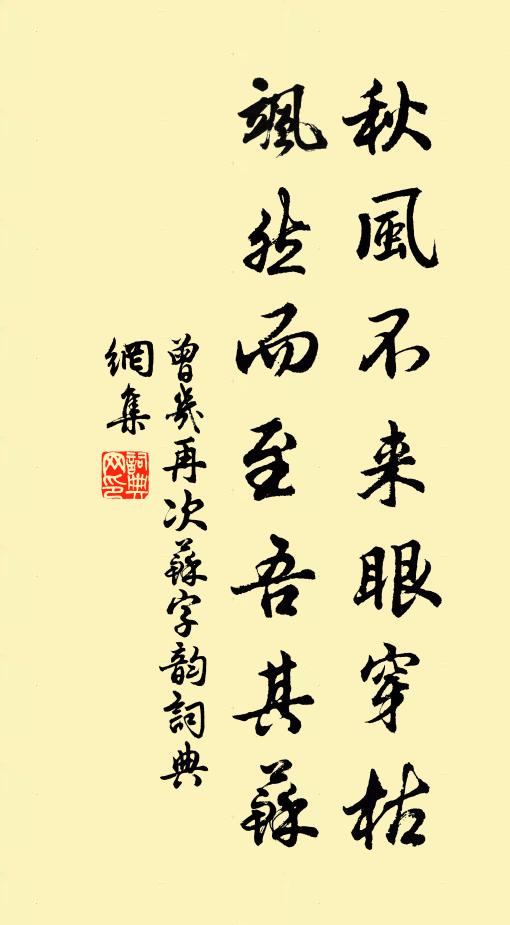 秋風不来眼穿枯
颯然而至吾其蘇
曾幾再次蘇字韵詞典
網集
詞典网印